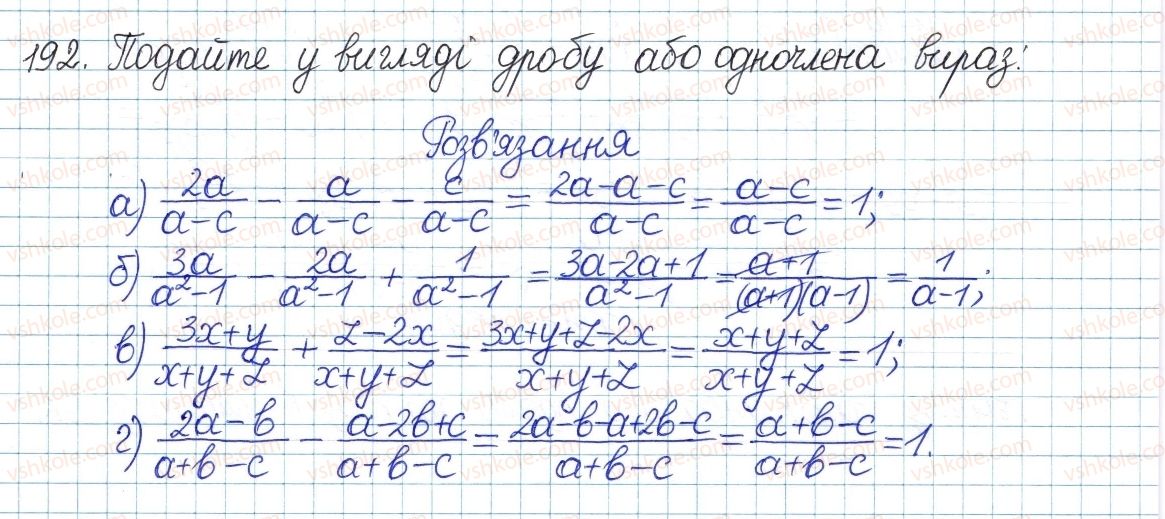 192. Подайте у вигляді дробу або одночлена вираз:
Розв'язання
а) 2a/(a-c) - a/(a-c) - c/(a-c) = (2a-a-c)/(a-c) = (a-c)/(a-c) = 1;
б) 3a/(a²-1) - 2a/(a²-1) + 1/(a²-1) = (3a-2a+1)/(a²-1) = (a+1)/((a+1)(a-1)) = 1/(a-1);
в) (3x+y)/(x+y+z) + (z-2x)/(x+y+z) = (3x+y+z-2x)/(x+y+z) = (x+y+z)/(x+y+z) = 1;
г) (2a-b)/(a+b-c) - (a-2b+c)/(a+b-c) = (2a-b-a+2b-c)/(a+b-c) = (a+b-c)/(a+b-c) = 1.
vshkole.com